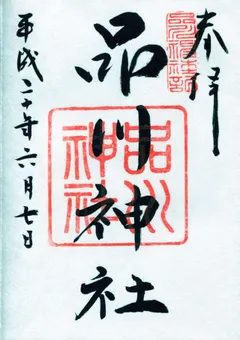 奉拝
品川神社
品川神社
平成二十年六月七日